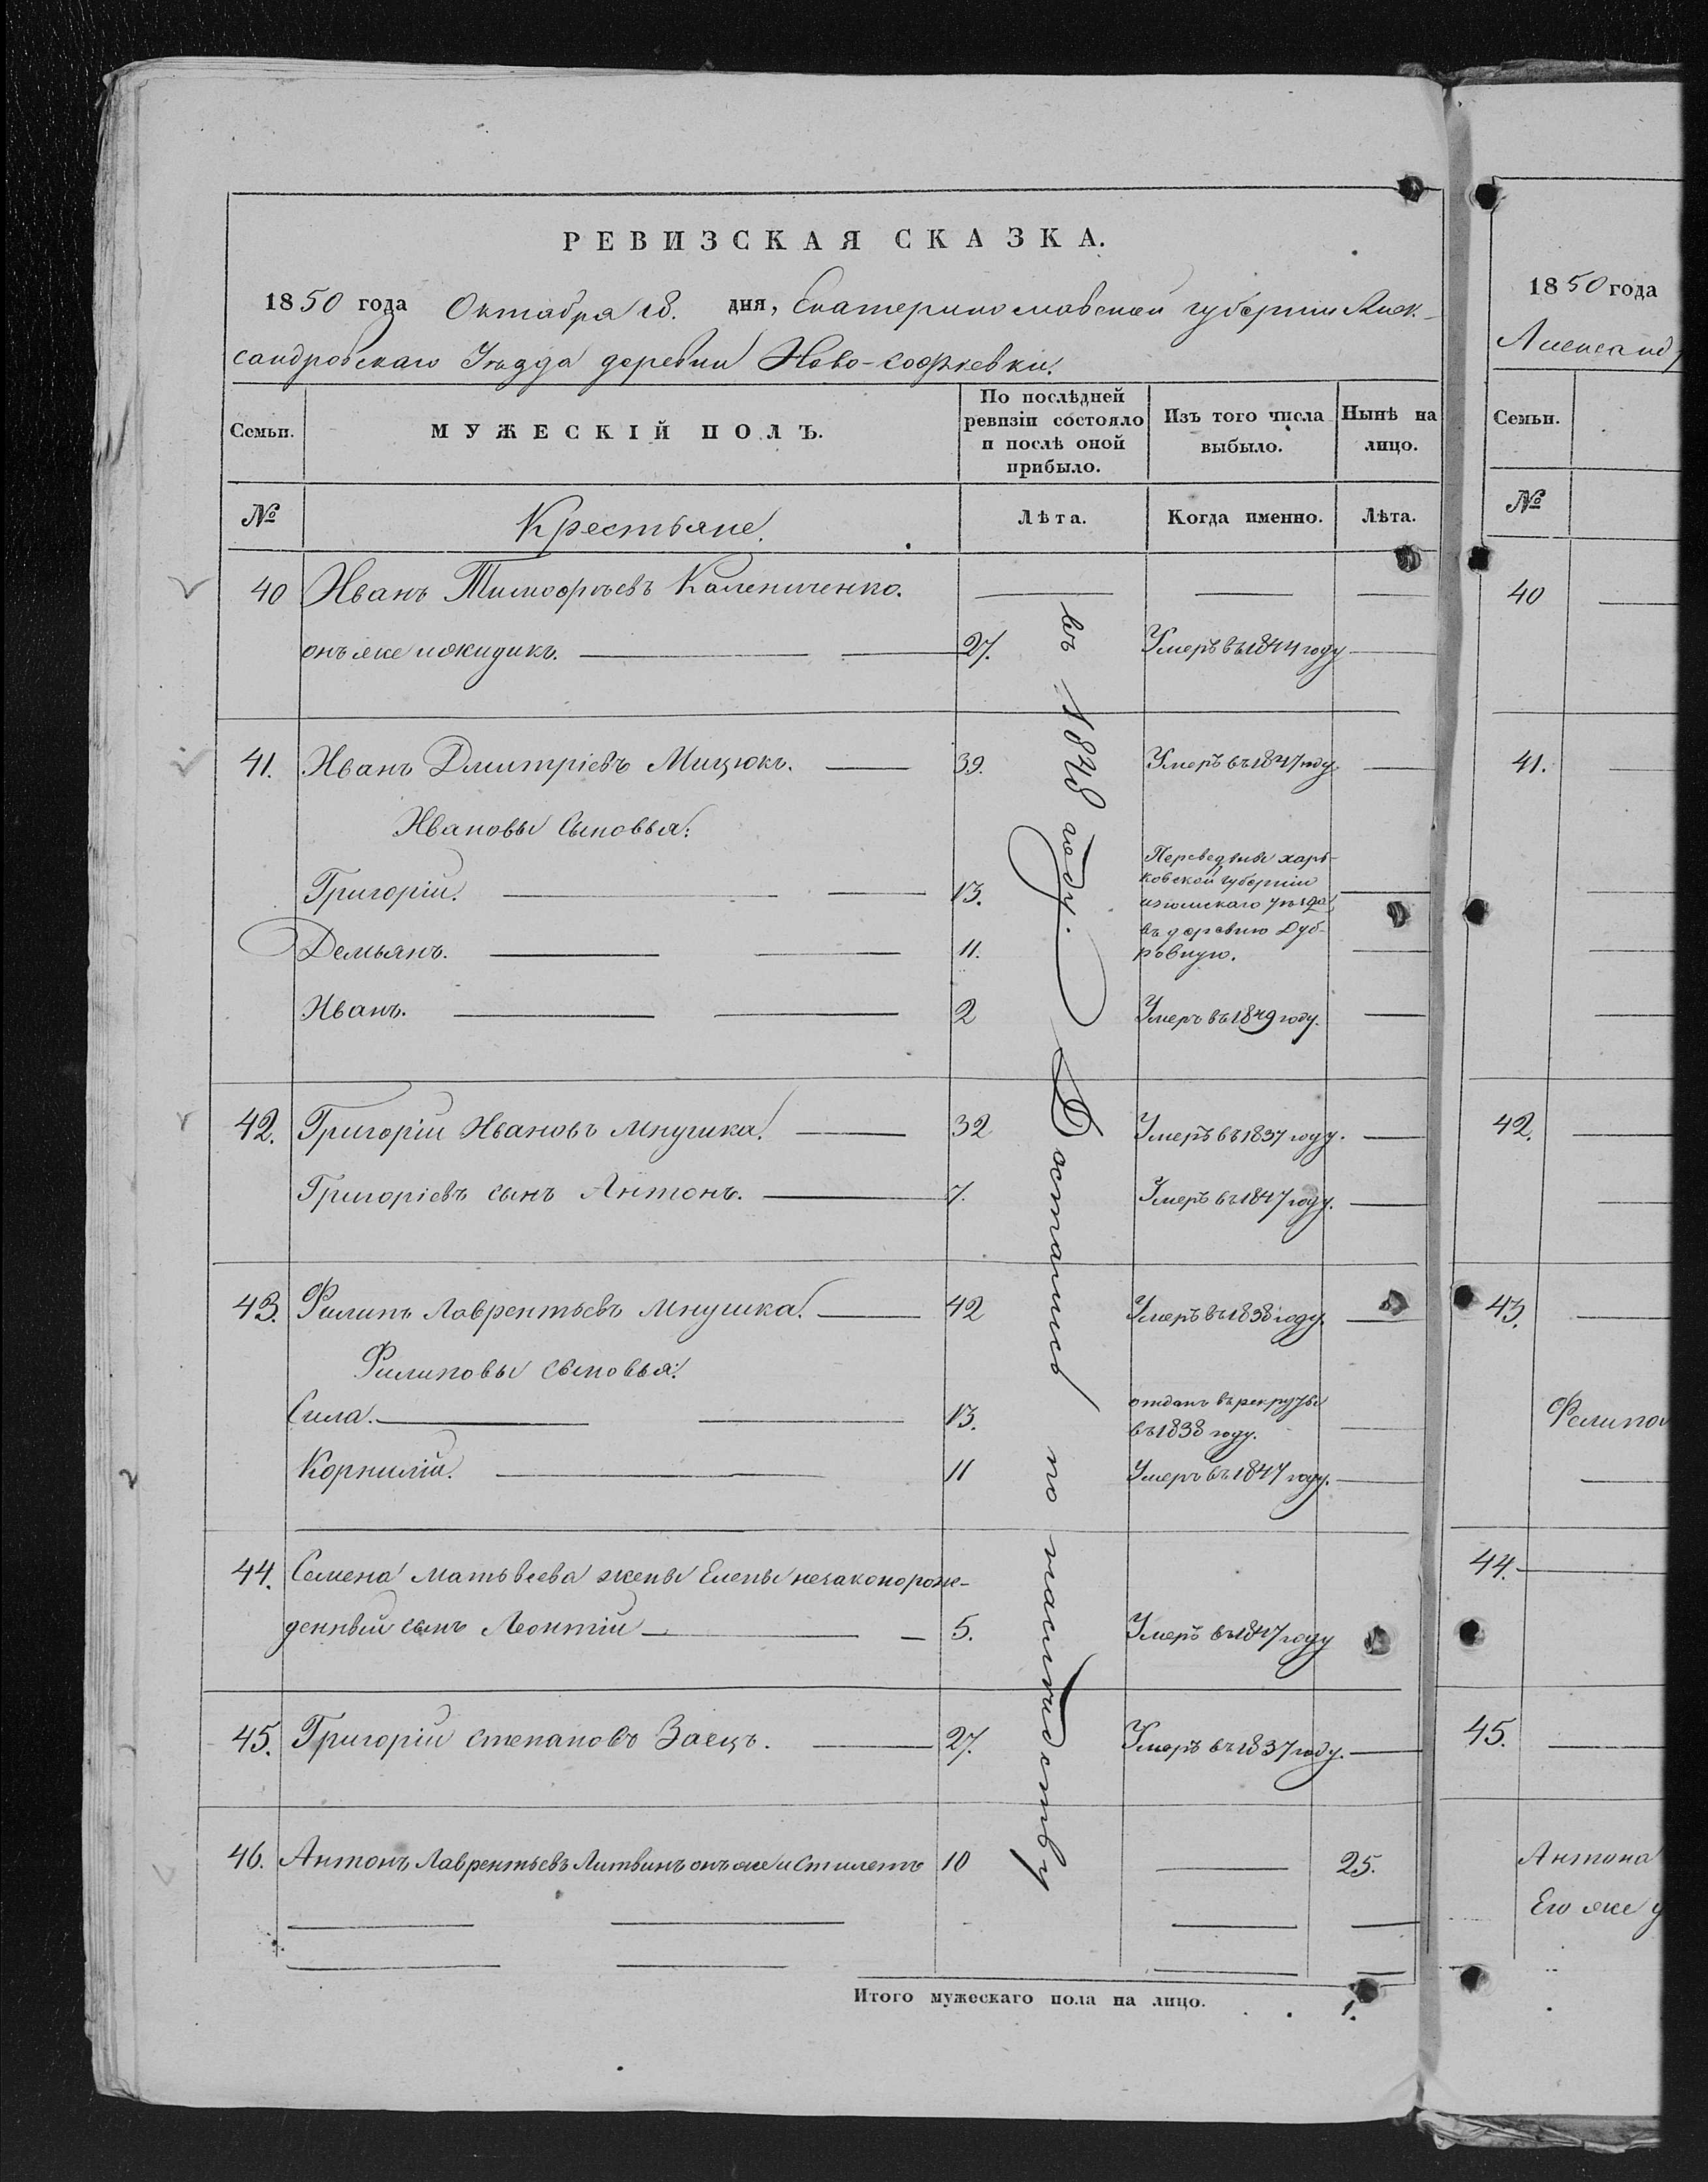 РЕВИЗСКАЯ СКАЗКА.
1850 года Октября 18. дня, Екатеринославской губернии Алек-
сандровскаго Уѣзда деревни Ново-софиевки.
Семьи.
МУЖЕСКІЙ ПОЛЪ.
По послѣдней ревизіи состояло и послѣ оной прибыло.
Изъ того числа выбыло.
Нынѣ на лицо.
№ Крестьяне. Лѣта. Когда именно. Лѣта.
40 Иванъ Тимофѣевъ Калениченко.
онъ же 27. Умеръ въ 1844 году
41. Иванъ Дмитріевъ Мицюкъ. 39. Умеръ въ 1847 году.
Ивановы сыновья:
Григорій. 13.
Демьянъ. 11.
Переведены харь-
ковской губернии
изюмскаго уѣзда
въ деревню Дуб-
ровную.
Иванъ. 2 Умеръ въ 1849 году.
42. Григорій Ивановъ Мнушка. 32 Умеръ въ 1837 году.
Григоріевъ сынъ Антонъ. 7. Умеръ въ 1847 году.
43. Филипъ Лаврентьевъ Мнушка. 42 Умеръ въ 1838 году.
Филиповы сыновья:
Сила. 13. отданъ въ рекруты
въ 1838 году.
Корнилій. 11 Умеръ въ 1847 году.
44. Семена Матьвеева жены Елены незаконорож-
денный сынъ Леонтій 5. Умеръ въ 1847 году
45. Григорій степановъ Заецъ. 27. Умеръ въ 1837 году.
46. Антонъ Лаврентьевъ Литвинъ онъ же и Стилетъ 10 25.
Достались по наслѣдству въ 1848 году.
Итого мужескаго пола на лицо. 1.
1850 года
Александ
Семьи.
№
40
41.
42.
43.
Филипов
44.
45.
Антона
Его же у